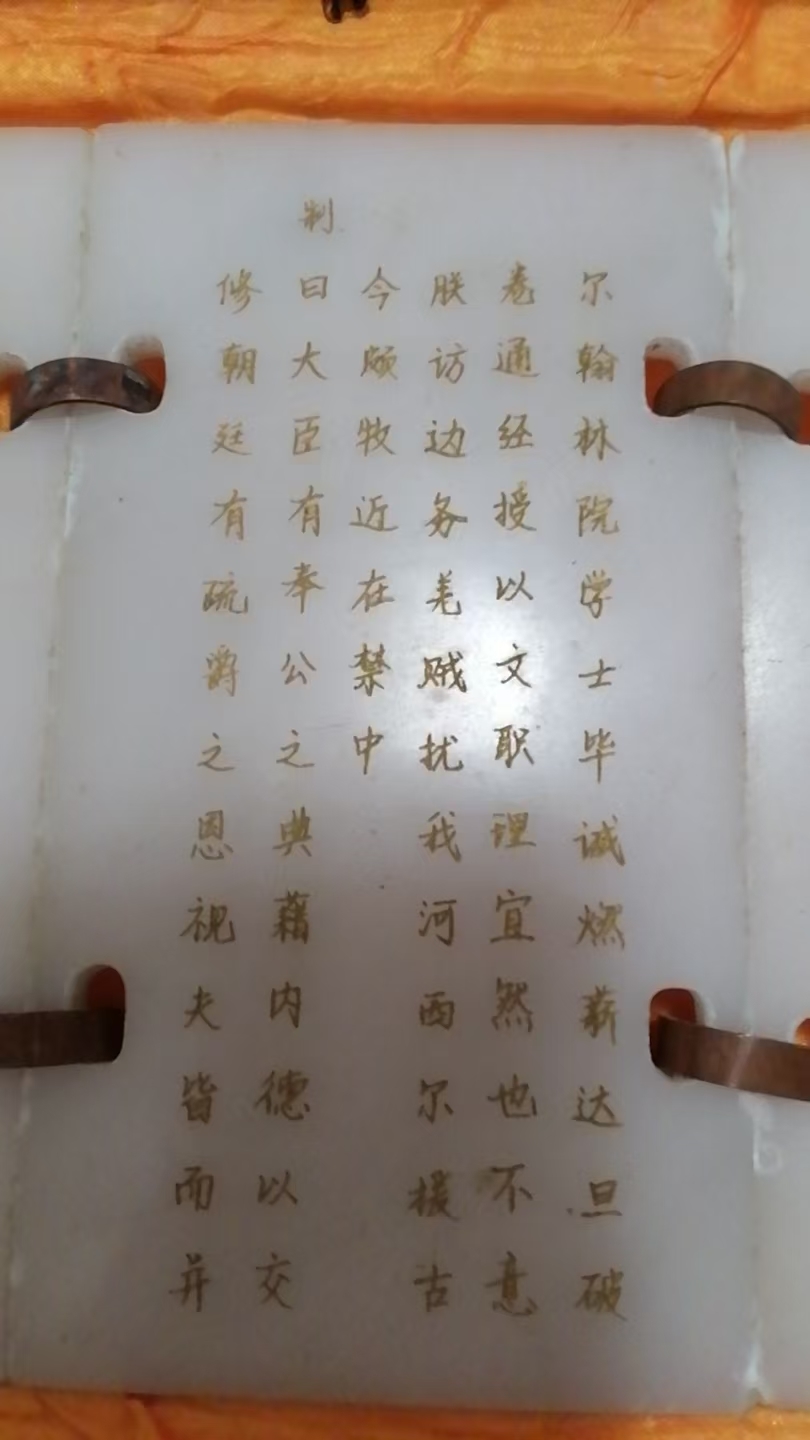 尔翰林院学士毕诚燃薪达旦破
卷通经授以文职理宜然也不意
朕访边务羌贼扰我河西尔援古
今颇牧近在禁中
制曰大臣有奉公之典藉内德以交
修朝廷有疏爵之恩视夫皆而并